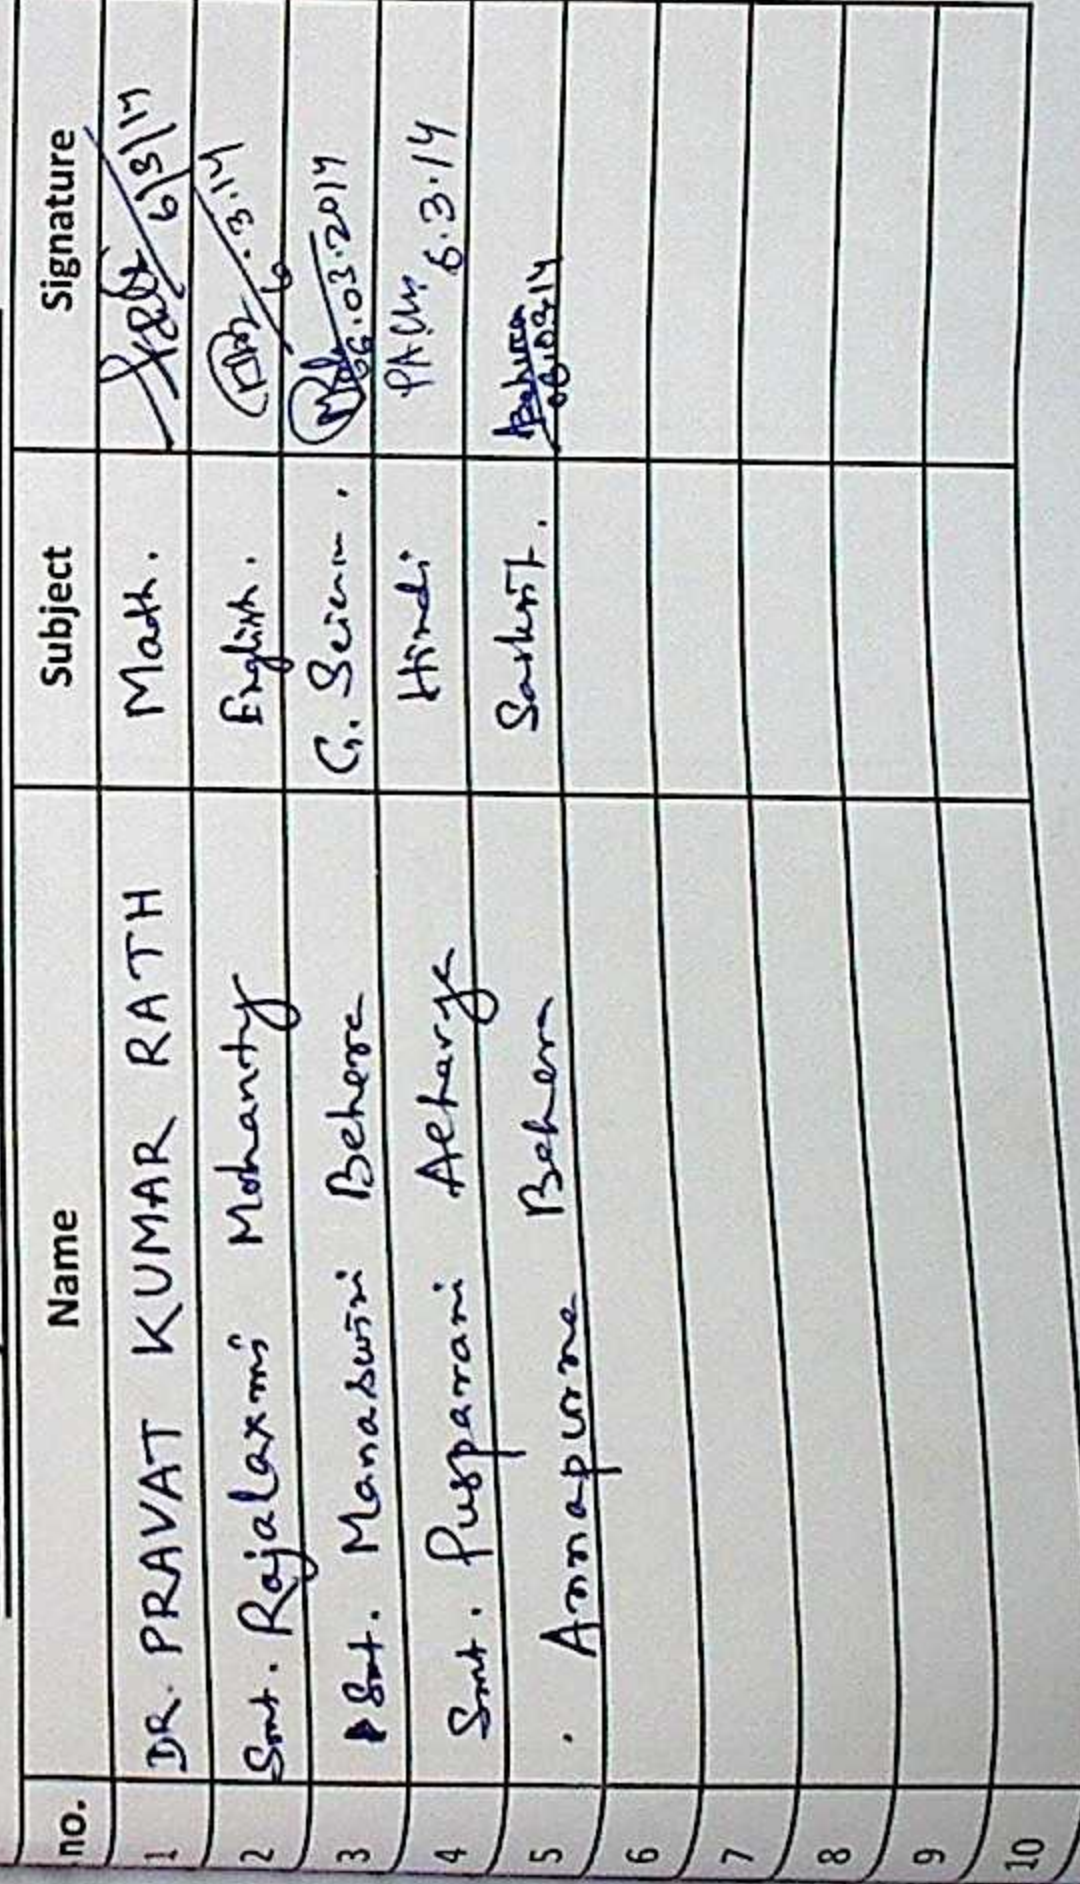 no. Name Subject Signature
1 DR. PRAVAT KUMAR RATH Math. 6/3/14
2 Smt. Rajalaxmi Mohanty English. 6.3.14
3 Smt. Manaswini Behera G. Scien . 06.03.2014
4 Smt. Pusparani Acharya Hindi 6.3.14
5 . Annapurna Behera Sanskrit. ABehera 06.03.14
6
7
8
9
10